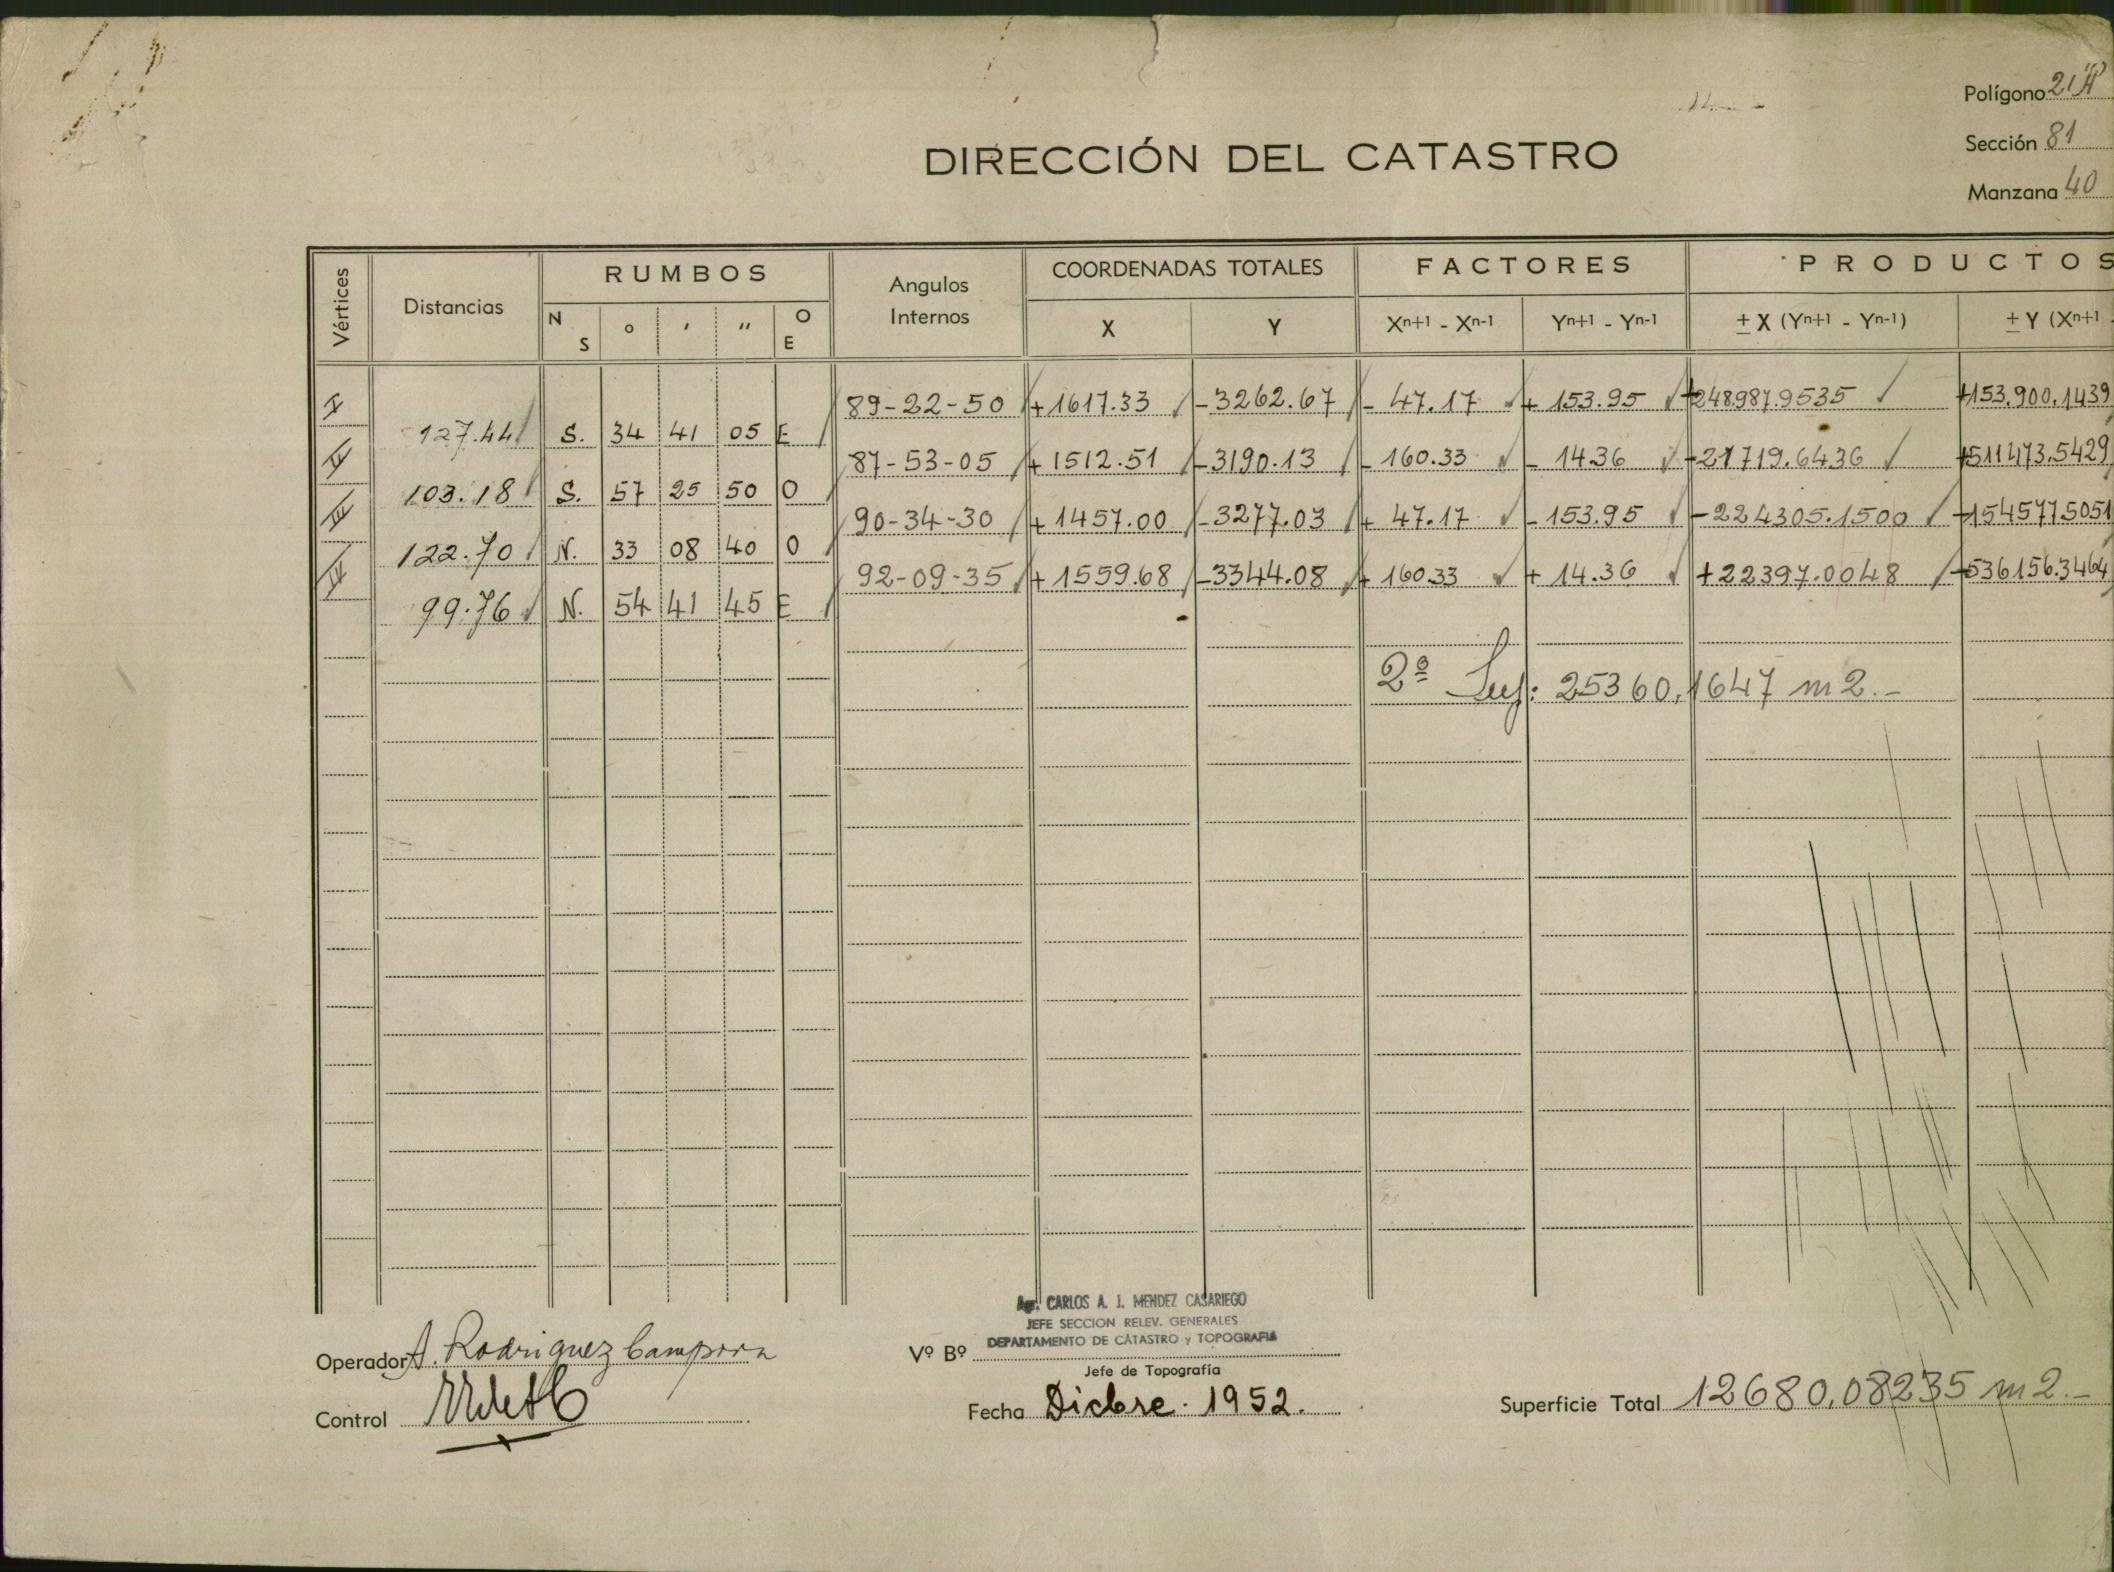 Polígono 21"A"
DIRECCIÓN DEL CATASTRO
Sección 81
Manzana 40
Vértices Distancias RUMBOS Angulos Internos COORDENADAS TOTALES FACTORES PRODUCTOS
N S ° ' " O E X Y Xn+1 - Xn-1 Yn+1 - Yn-1 ± X (Yn+1 - Yn-1) ± Y (Xn+1
I 89-22-50 +1617.33 -3262.67 - 47.17 + 153.95 +248987.9535 +153.900.1439
127.44 S. 34 41 05 E
II 87-53-05 +1512.51 -3190.13 - 160.33 - 14.36 -21719.6436 +511473.5429
103.18 S. 57 25 50 O
III 90-34-30 +1457.00 -3277.03 + 47.17 - 153.95 -224305.1500 -154577.5051
122.70 N. 33 08 40 O
IV 92-09-35 +1559.68 -3344.08 + 160.33 + 14.36 +22397.0048 -536156.3464
99.76 N. 54 41 45 E
2ª Sup: 25360,1647 m2.-
Agr. CARLOS A. J. MENDEZ CASARIEGO
JEFE SECCION RELEV. GENERALES
DEPARTAMENTO DE CATASTRO y TOPOGRAFIA
Operador A. Rodriguez Campora Vº Bº
Jefe de Topografía
Control Fecha Dicbre. 1952. Superficie Total 12680,08235 m2.-